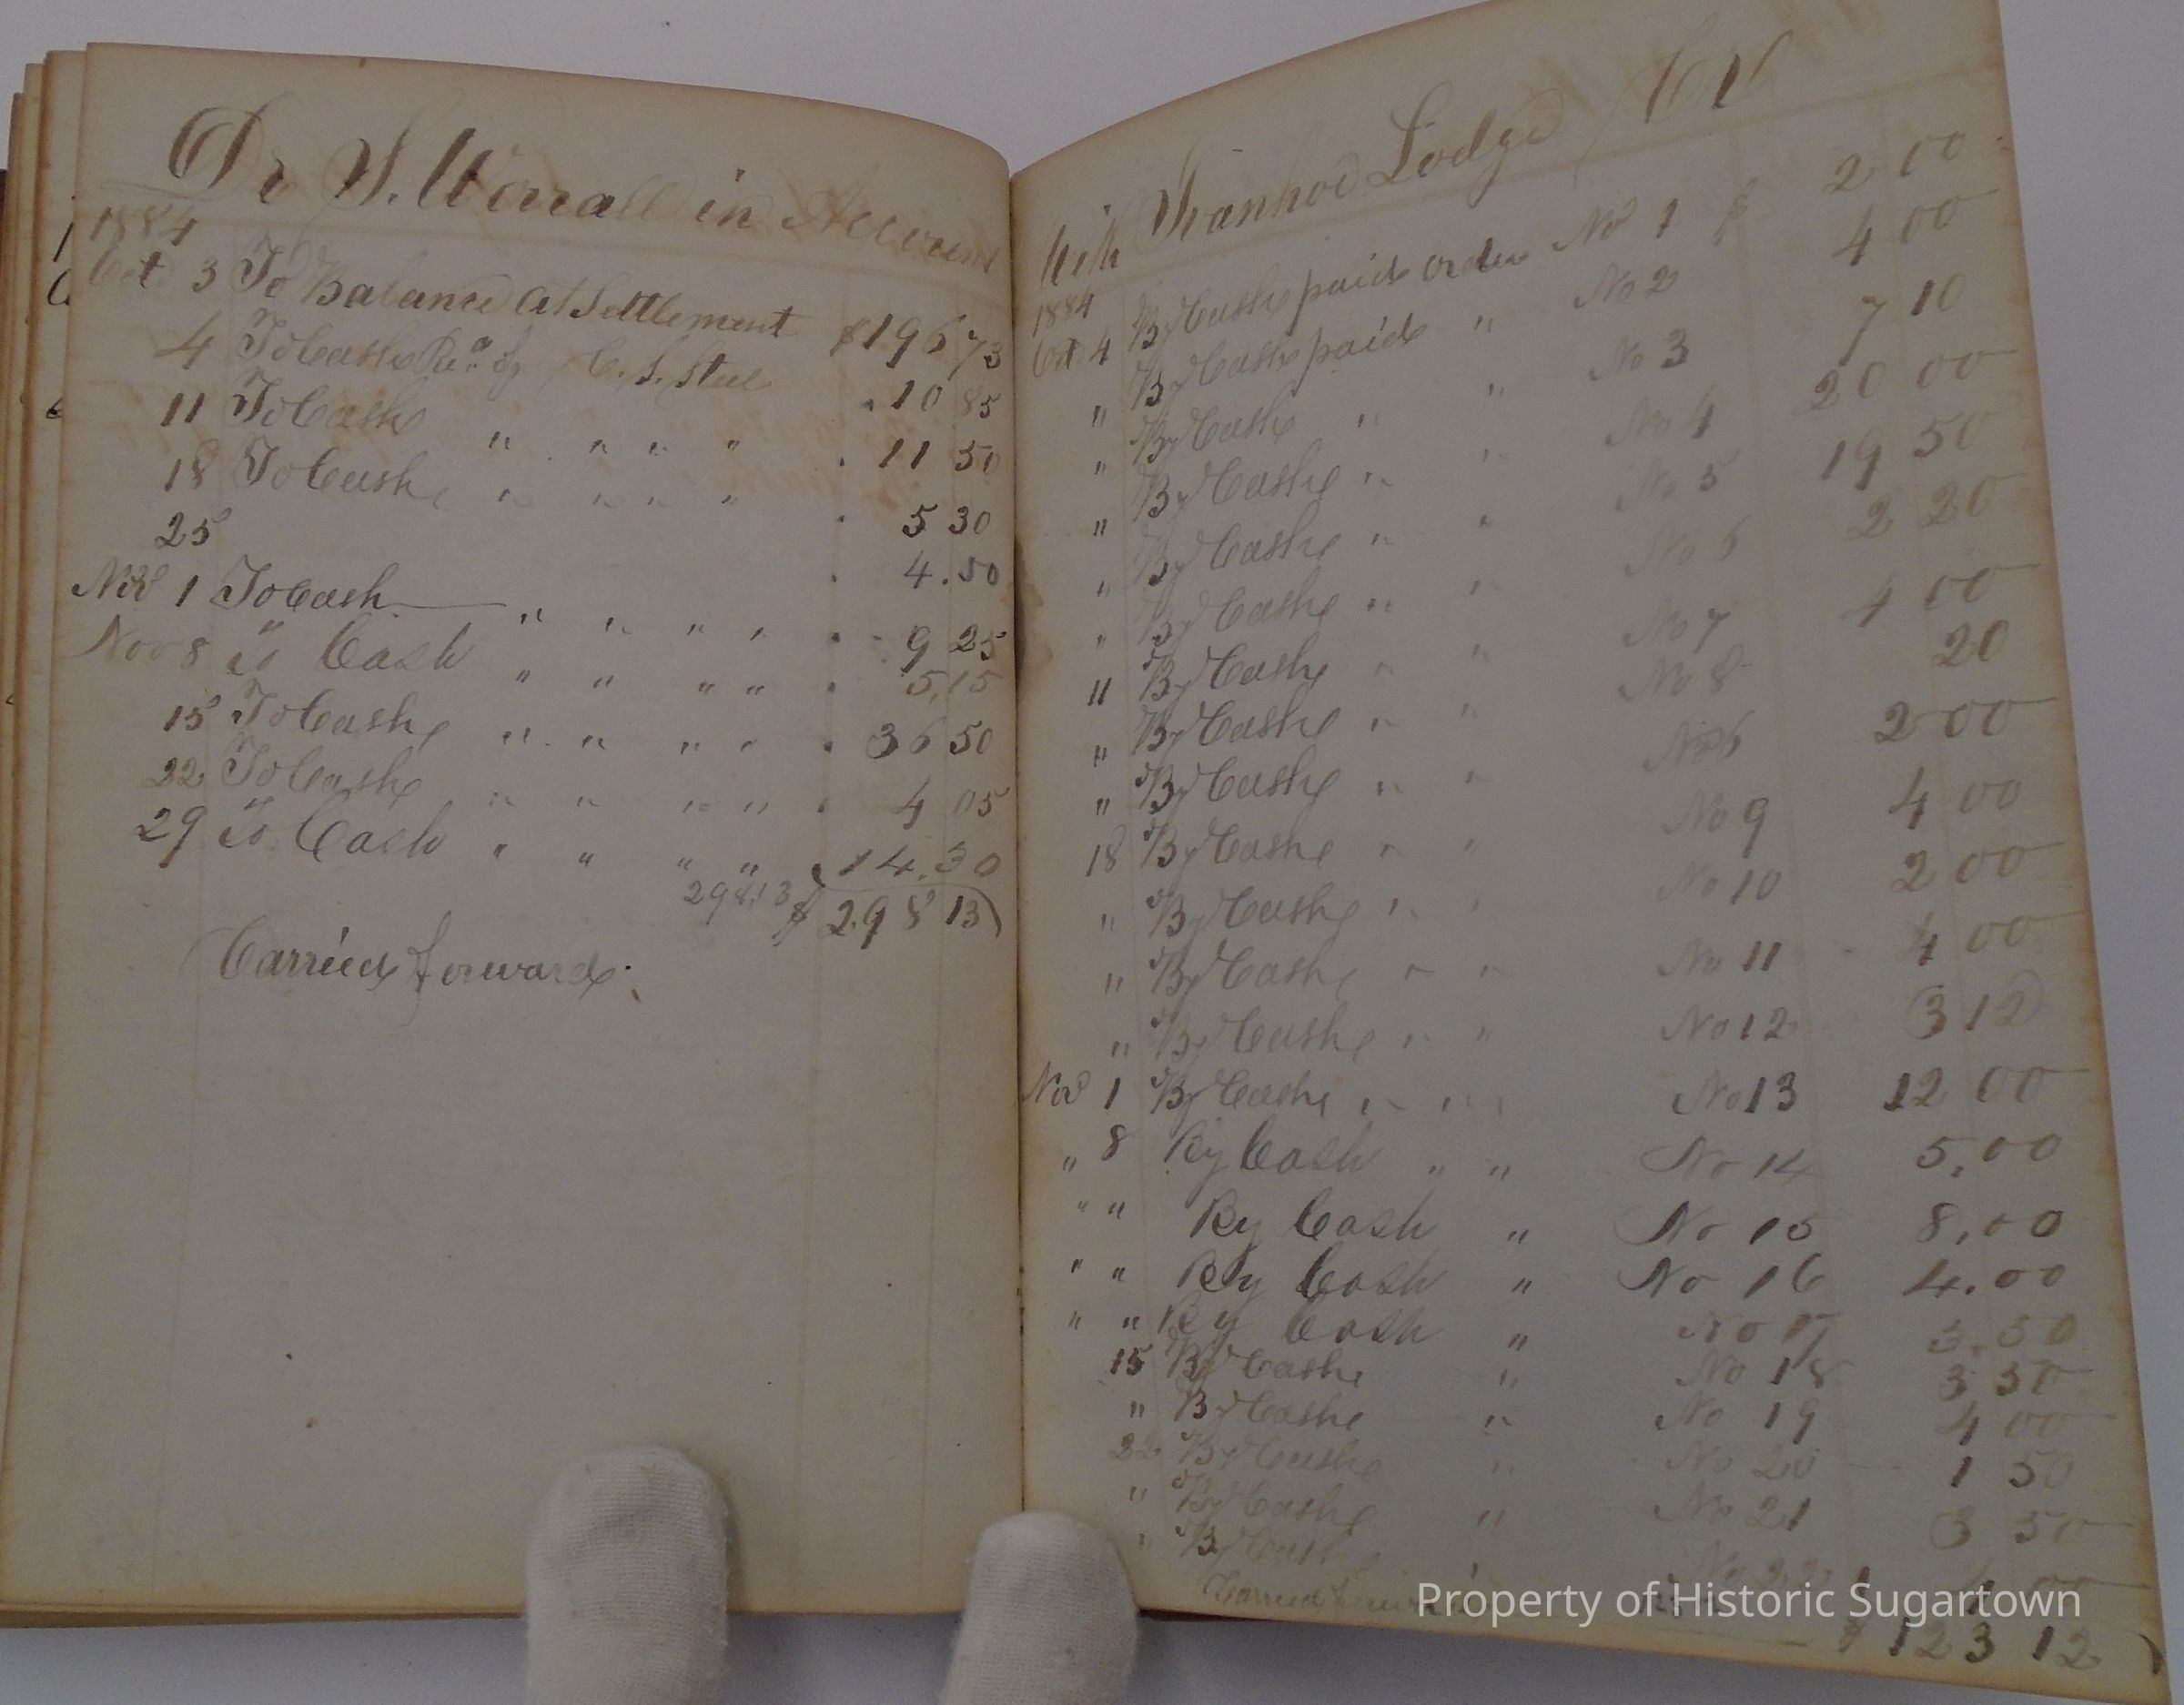 Dr S. Worrall in Account
1884
Oct 3 To Balance at Settlement $196 73
4 To Cash Rec'd of C. S. Steel " 10 85
11 To Cash " " " " " 11 50
18 To Cash " " " " " 5 30
25 " 4.50
Nov 1 To Cash " " " " " 9 25
Nov 8 To Cash " " " " " 5,15
15 To Cash " " " " " 36 50
22 To Cash " " " " " 4 05
29 To Cash " " " " 14.30
298.13 $ 298 13
Carried forward.
With Ivanhoe Lodge Cr
1884
Oct 4 By Cash paid order No 1 $ 2 00
" By Cash paid " No 2 4 00
" By Cash " " No 3 7 10
" By Cash " " No 4 20 00
" By Cash " " No 5 19 50
" By Cash " " No 6 2 20
11 By Cash " " No 7 4 00
" By Cash " " No 8 20
" By Cash " " No 6 2 00
18 By Cash " " No 9 4 00
" By Cash " " No 10 2 00
" By Cash " " No 11 4 00
" By Cash " " No 12 3 12
Nov 1 By Cash " " No 13 12 00
" 8 By Cash " " No 14 5,00
" " By Cash " No 15 8,00
" " By Cash " No 16 4.00
" " By Cash " No 17 3.50
15 By Cash " No 18 3 50
" By Cash " No 19 4 00
22 By Cash " No 20 1 50
" By Cash " No 21 3 50
" By Cash " No 22 4 00
Carried forward
$ 123 12
Property of Historic Sugartown